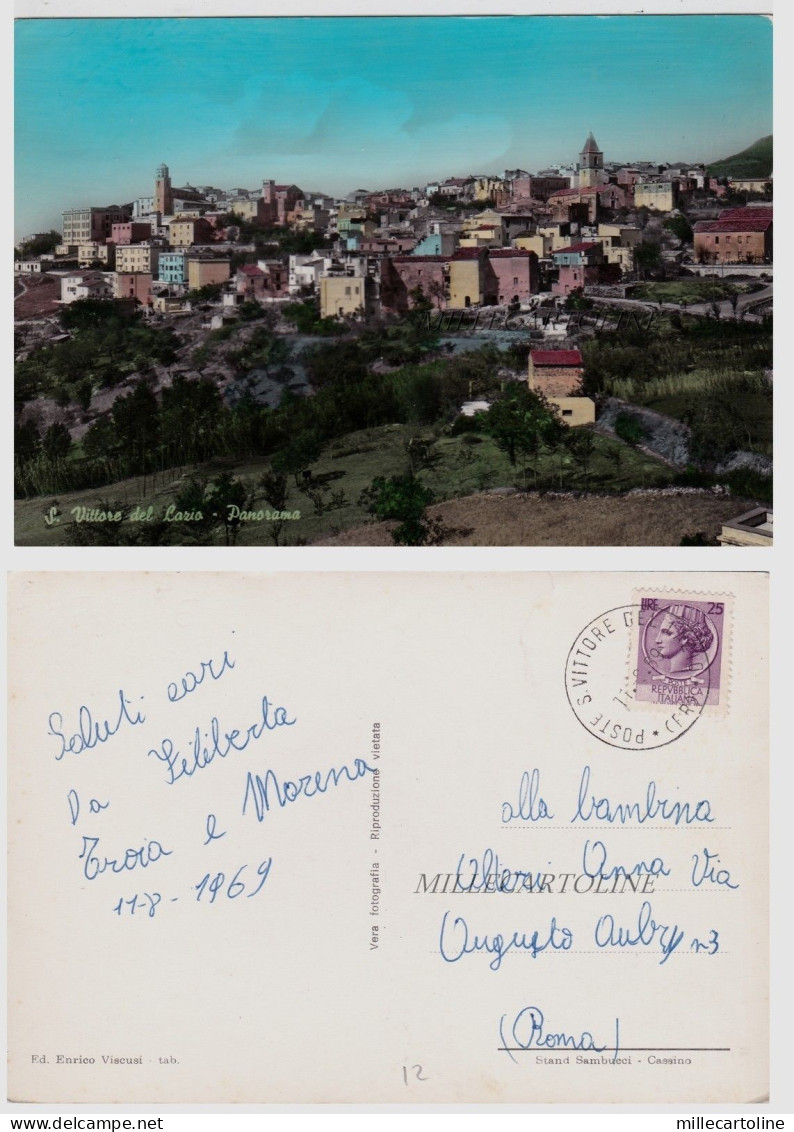 S. Vittore del Lazio - Panorama
MILLECARTOLINE
LIRE 25
POSTE
REPVBBLICA
ITALIANA
POSTE S. VITTORE DEL (FR)
Saluti cari
Da Filiberta
Troia e Morena
11-8-1969
Vera fotografia - Riproduzione vietata
alla bambina
Altieri Anna Via
MILLECARTOLINE
Augusto n3
(Roma)
Ed. Enrico Viscusi - tab.
Stand Sambucci - Cassino
12
millecartoline